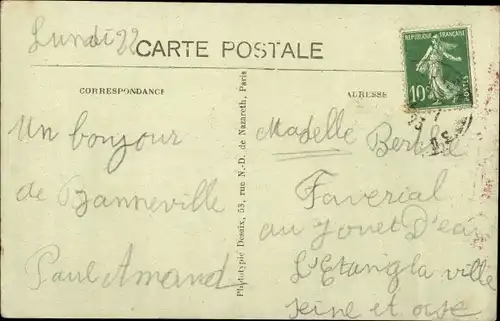 Lundi 22
CARTE POSTALE
CORRESPONDANCE
ADRESSE
REPUBLIQUE FRANÇAISE
10c
POSTES
Un bonjour
de Banneville
Paul Amand
Phototypie Desaix, 53, rue N.-D. de Nazareth, Paris
Madelle Berthe
Faverial
au Jouet D'eau
L'Etang la ville
seine et oise